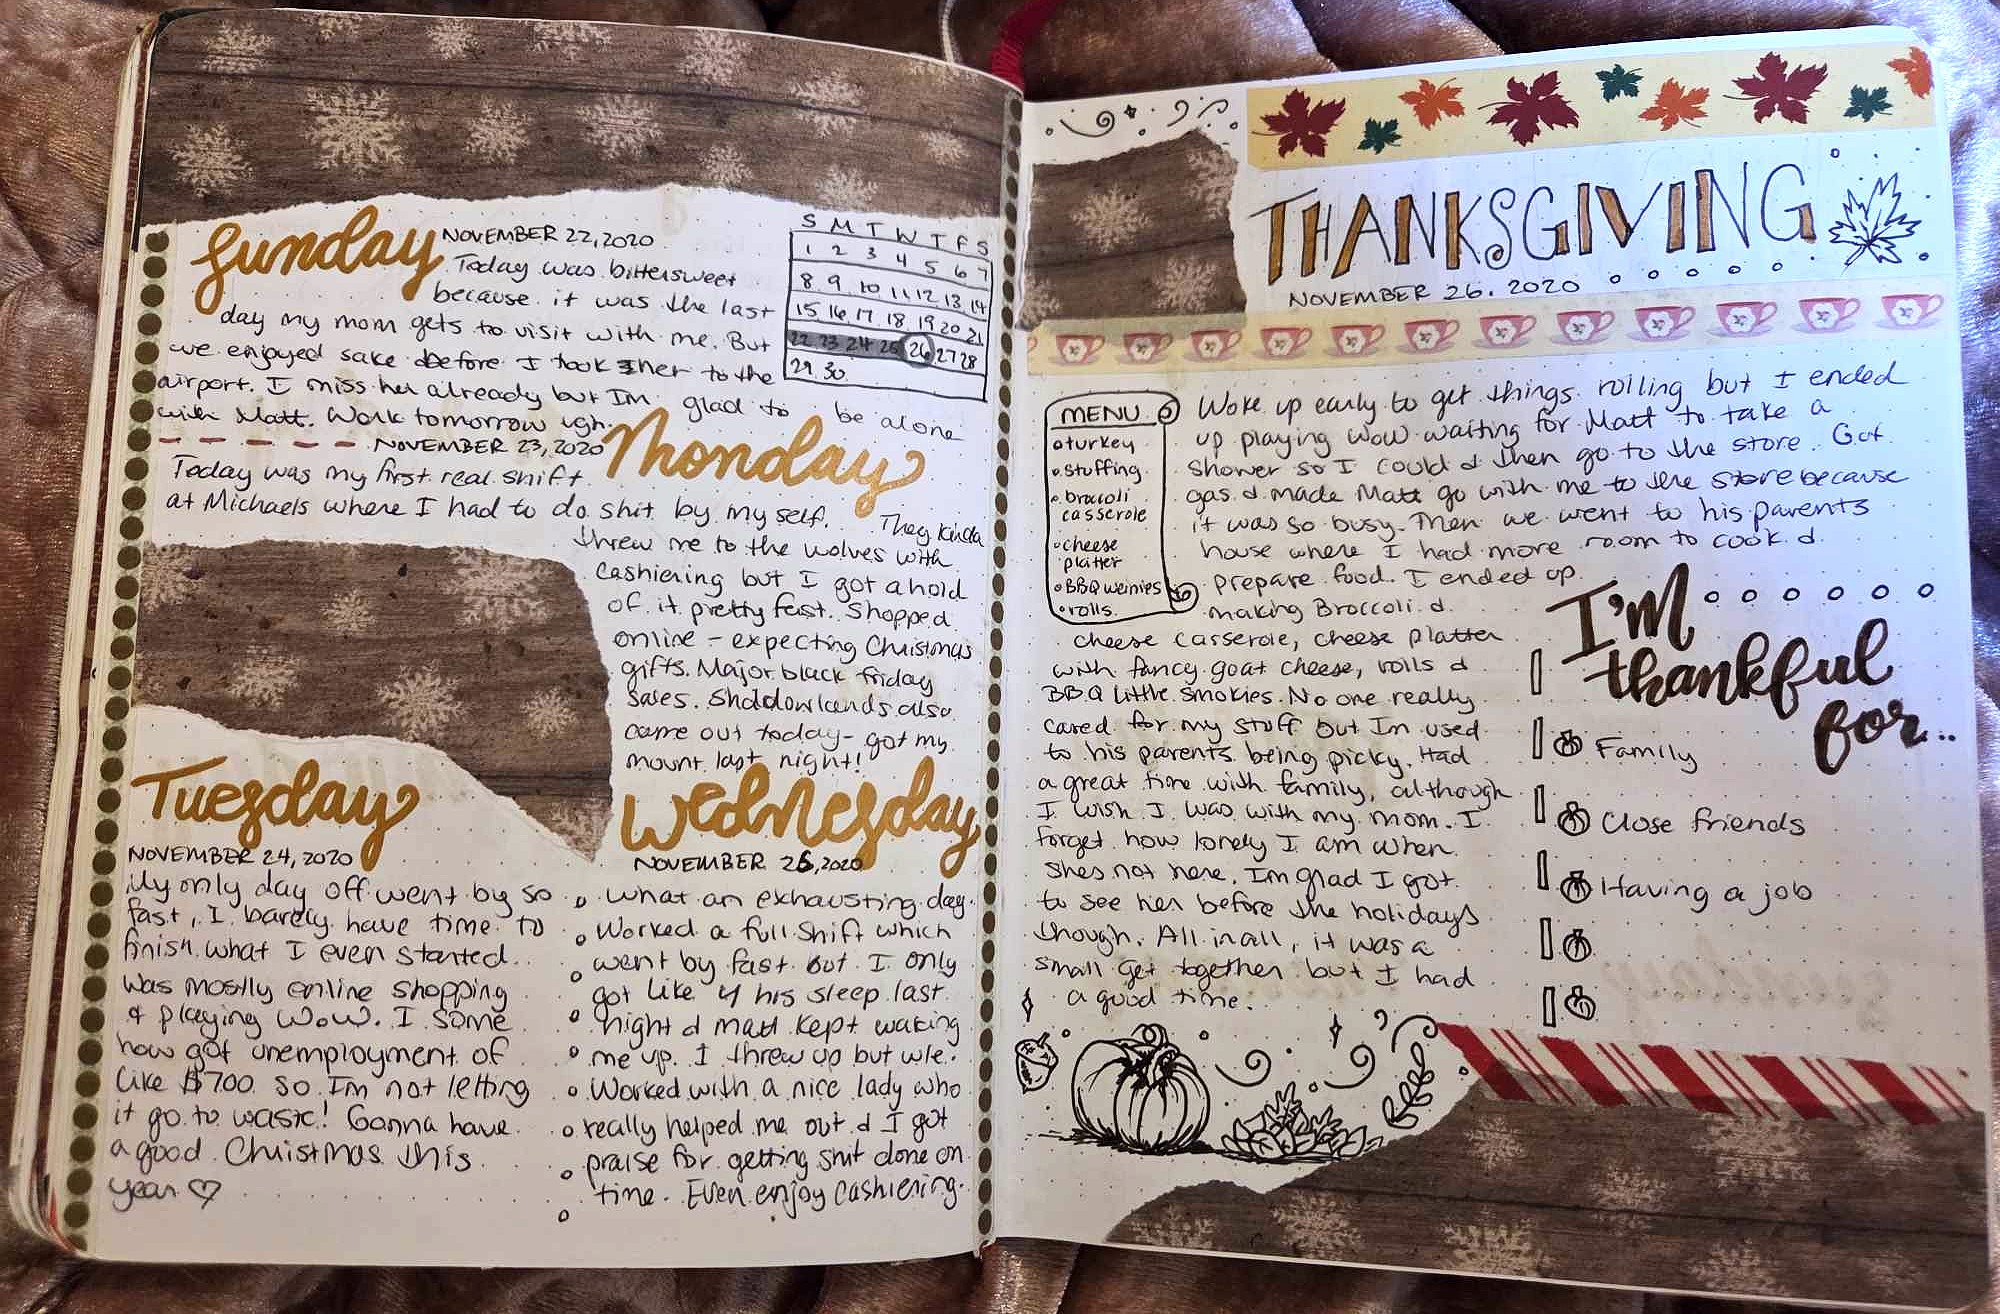 Sunday NOVEMBER 22, 2020
Today was bittersweet
because it was the last
day my mom gets to visit with me. But
we enjoyed sake before I took her to the
airport. I miss her already but Im glad to be alone
with Matt. Work tomorrow ugh.
S M T W T F S
1 2 3 4 5 6 7
8 9 10 11 12 13 14
15 16 17 18 19 20 21
22 23 24 25 26 27 28
29 30
NOVEMBER 23, 2020 Monday
Today was my first real shift
at Michaels where I had to do shit by my self. They kinda
threw me to the wolves with
cashiering but I got a hold
of it pretty fast. Shopped
online - expecting Christmas
gifts. Major black friday
sales. Shadowlands also
came out today - got my
mount last night!
Tuesday
NOVEMBER 24, 2020
My only day off went by so
fast, I barely have time to
finish what I even started.
Was mostly online shopping
& playing WoW. I some
how got unemployment of
like $700 so Im not letting
it go to waste! Gonna have
a good Christmas this
year ♡
Wednesday
NOVEMBER 25, 2020
What an exhausting day.
Worked a full shift which
went by fast but I only
got like 4 hrs sleep last
night & matt kept waking
me up. I threw up but w/e.
Worked with a nice lady who
really helped me out & I got
praise for getting shit done on
time. Even enjoy cashiering.
THANKSGIVING
NOVEMBER 26. 2020
MENU
turkey
stuffing
broccoli
casserole
cheese
platter
BBQ weinies
rolls
Woke up early to get things rolling but I ended
up playing WoW waiting for Matt to take a
shower so I could & then go to the store. Got
gas & made Matt go with me to the store because
it was so busy. Then we went to his parents
house where I had more room to cook &
prepare food. I ended up
making Broccoli &
cheese casserole, cheese platter
with fancy goat cheese, rolls &
BBQ little smokies. No one really
cared for my stuff but Im used
to his parents being picky. Had
a great time with family, although
I wish I was with my mom. I
forget how lonely I am when
shes not here. Im glad I got
to see her before the holidays
though. All in all, it was a
small get together but I had
a good time.
I'm
thankful
for...
Family
Close friends
Having a job